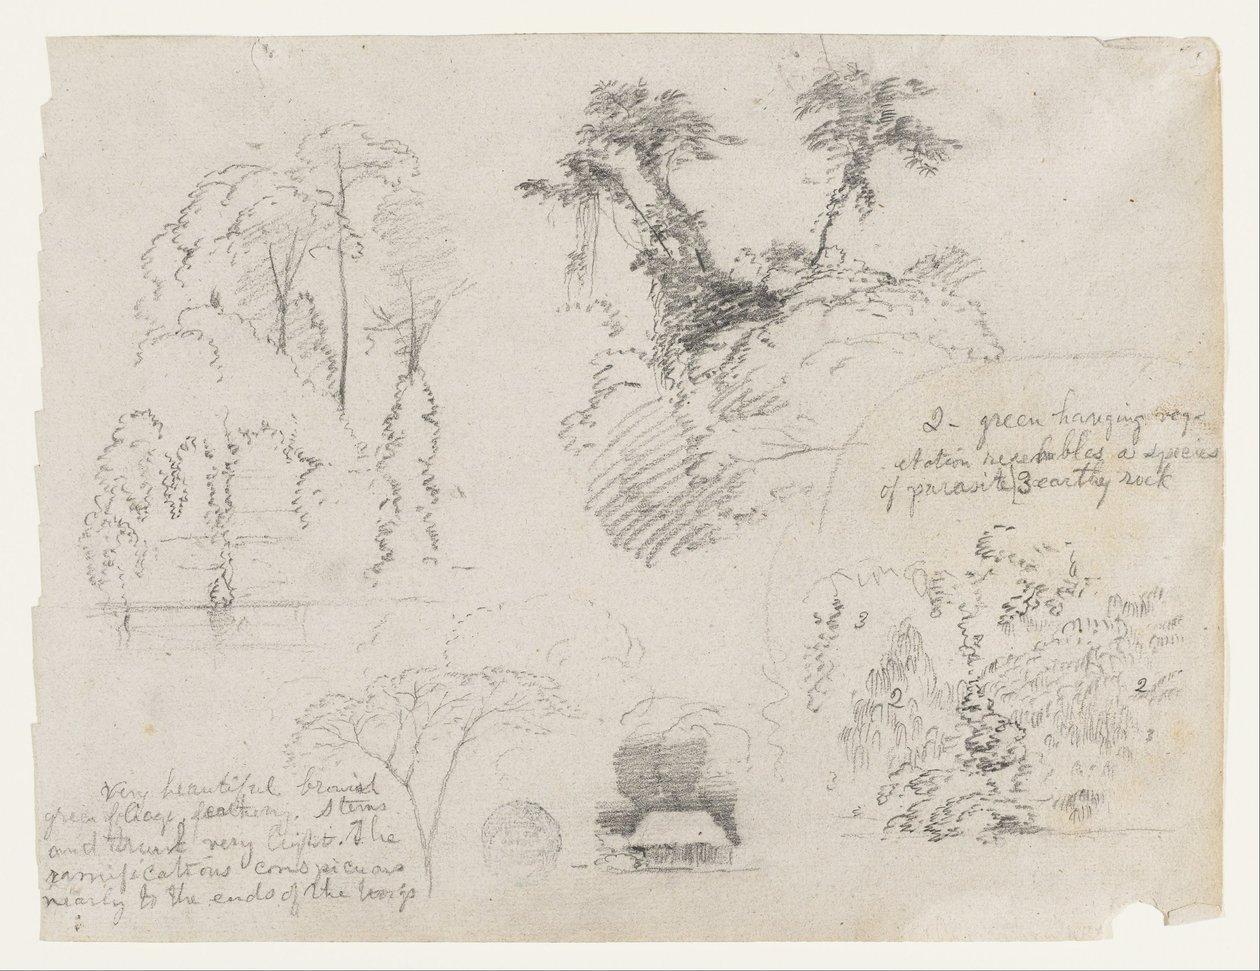 2 - green hanging veg-
etation resembles a species
of parasite [3 earthy rock
3
2
2
3
3
very beautiful brownish
green foliage, feathery. Stems
and trunk very light. The
ramifications conspicuous
nearly to the ends of the twigs